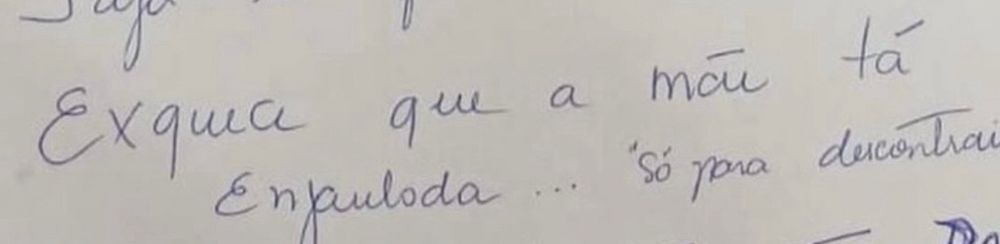 Exquça que a mãe tá
Enjaulada ... "Só para descontrai